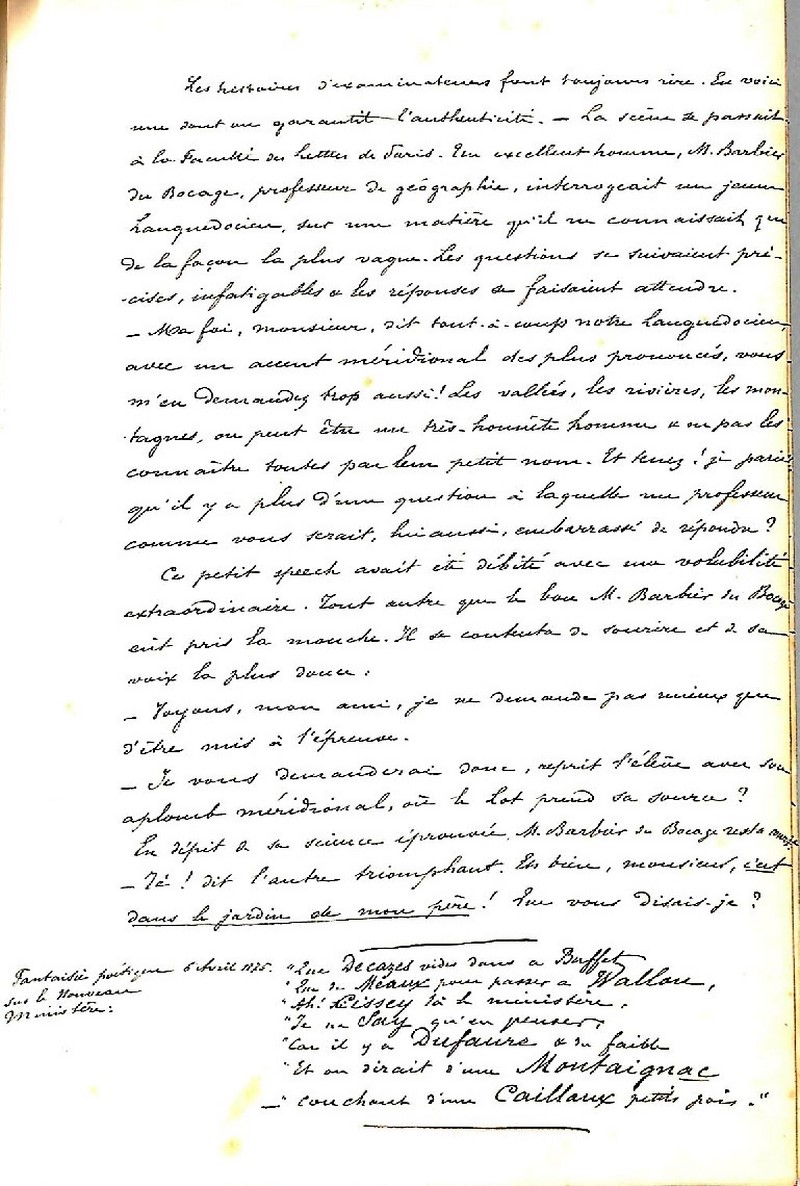 Les histoires d'examinateurs font toujours rire. En voici
une dont on garantit l'authenticité. — La scène se passait
à la Faculté des lettres de Paris. Un excellent homme, M. Barbier
du Bocage, professeur de géographie, interrogeait un jeune
Languedocien, sur une matière qu'il ne connaissait que
de la façon la plus vague. Les questions se suivaient pré-
-cises, infatigables & les réponses se faisaient attendre.
— Ma foi, monsieur, dit tout-à-coup notre Languedocien,
avec un accent méridional des plus prononcés, vous
m'en demandez trop aussi! Les vallées, les rivières, les mon-
-tagnes, on peut être un très-honnête homme & ne pas les
connaître toutes par leur petit nom. Et tenez! je parie
qu'il y a plus d'une question à laquelle un professeur
comme vous serait, lui aussi, embarrassé de répondre?
Ce petit speech avait été débité avec une volubilité
extraordinaire. Tout autre que le bon M. Barbier du Bocage
eût pris la mouche. Il se contenta de sourire et de sa
voix la plus douce:
— Voyons, mon ami, je ne demande pas mieux que
d'être mis à l'épreuve.
— Je vous demanderai donc, reprit l'élève avec son
aplomb méridional, où le Lot prend sa source?
En dépit de sa science éprouvée, M. Barbier du Bocage resta
— Té! dit l'autre triomphant. Eh bien, monsieur, c'est
dans le jardin de mon père! Que vous disais-je?
Fantaisie poétique 6 Avril 1875.
sur le Nouveau
Ministère:
"Que Decazes vides dans ce Buffet
"Que de Méaux pour passer ce Wallon,
"Ah! Cissey là le ministère,
"Je ne Say qu'en penser,
"Car il y a Dufaure & du faible
"Et on dirait d'une Montaignac
—" couchant d'une Caillaux petits pois."